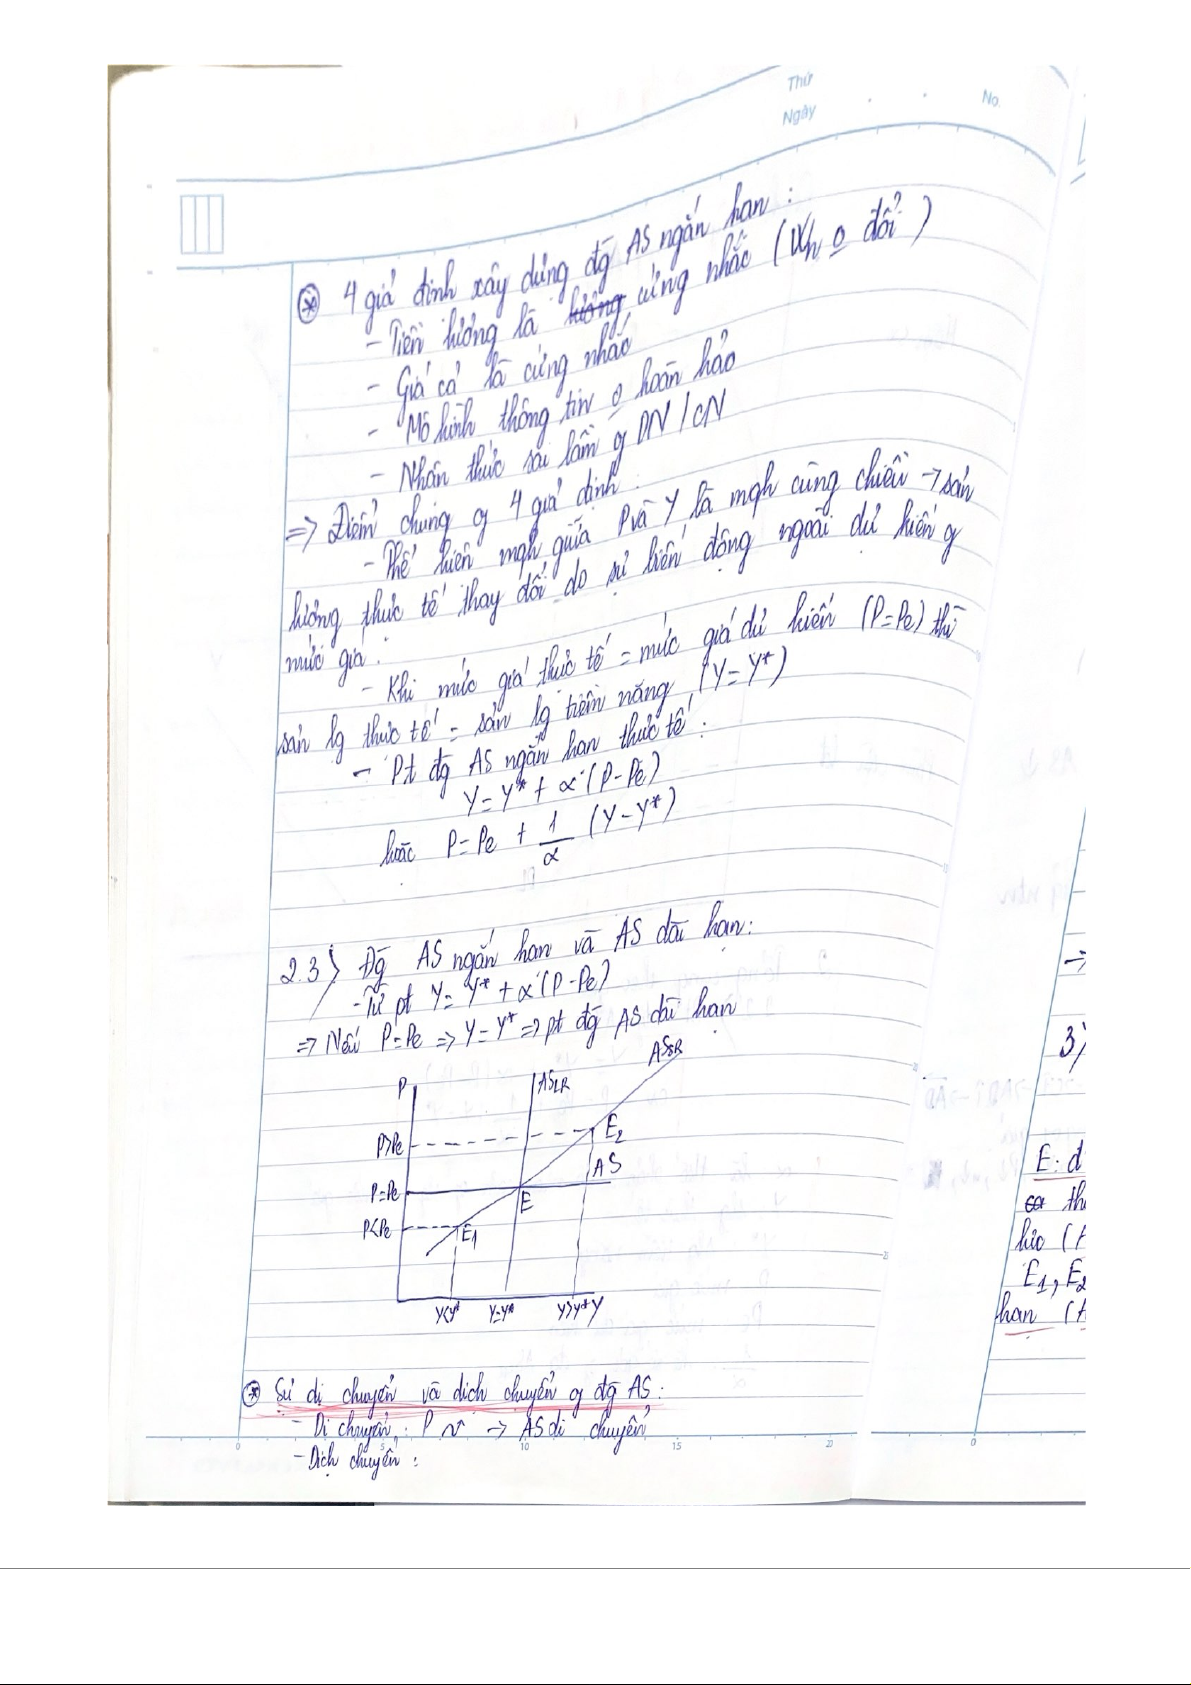 Thứ
Ngày
No.
⊛ 4 giả định xây dựng đg AS ngắn hạn :
- Tiền lương là cứng nhắc (Wn o đổi)
- Giá cả là cứng nhắc
- Mô hình thông tin o hoàn hảo
- Nhận thức sai lầm of DN / CN
=> Điểm chung of 4 giả định :
- Thể hiện mqh giữa P và Y là mqh cùng chiều -> sản
lượng thực tế thay đổi do sự biến động ngoài dự kiến of
mức giá.
- Khi mức giá thực tế = mức giá dự kiến (P=Pe) thì
sản lg thực tế = sản lg tiềm năng (Y = Y*)
- Pt đg AS ngắn hạn thực tế :
Y = Y* + α·(P-Pe)
hoặc P = Pe + 1/α (Y - Y*)
2.3) Đg AS ngắn hạn và AS dài hạn:
- Từ pt Y = Y* + α·(P-Pe)
=> Nếu P=Pe => Y = Y* => pt đg AS dài hạn
P
ASLR
ASSR
P>Pe
E2
AS
P=Pe
E
P<Pe
E1
Y<Y*
Y=Y*
Y>Y*
Y
⊛ Sự di chuyển và dịch chuyển of đg AS :
- Di chuyển : P ~ -> AS di chuyển
- Dịch chuyển :
0 5 10 15 20
->
3)
E : đ
th
E1, E2
hạn (
0